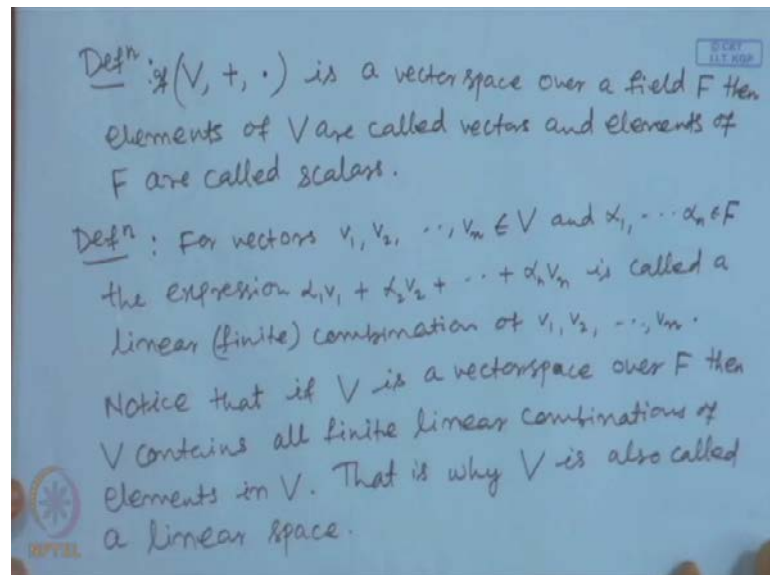 Defⁿ : If (V, +, ·) is a vector space over a field F then
elements of V are called vectors and elements of
F are called scalars.
Defⁿ : For vectors v₁, v₂, ..., vₙ ∈ V and α₁, ... αₙ ∈ F
the expression α₁v₁ + α₂v₂ + ... + αₙvₙ is called a
linear (finite) combination of v₁, v₂, ..., vₙ.
Notice that if V is a vectorspace over F then
V contains all finite linear combinations of
elements in V. That is why V is also called
a linear space.
© CET
I.I.T. KGP
NPTEL